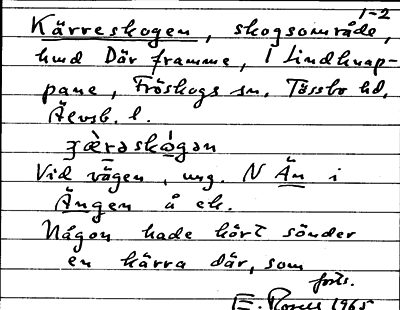 1-2
Kärreskogen, skogsområde,
hmd Där framme, i Lindknap-
pane, Fröskogs sn, Tössbo hd,
Älvsb. l.
Vid vägen, ung. N Än i
Ängen å ek.
Någon hade kört sönder
en kärra där, som
forts.
E. 1965